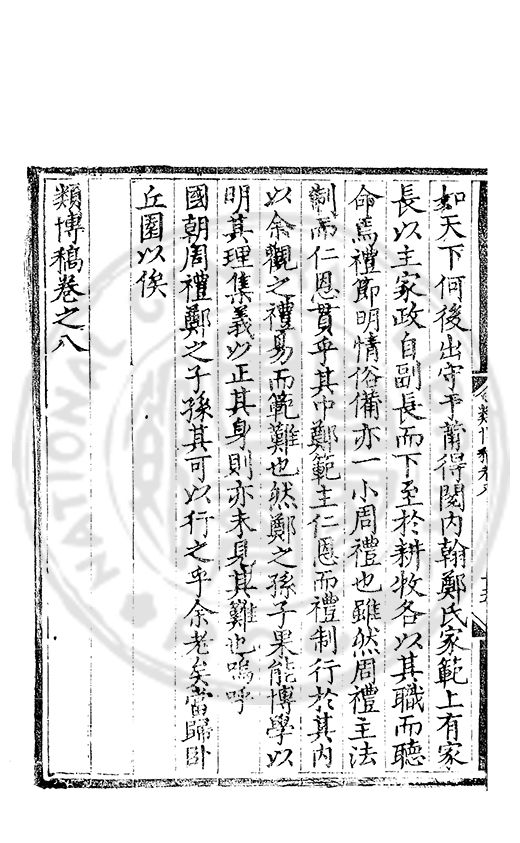 如天下何後出守于莆得閱内翰鄭氏家範上有家
長以主家政自副長而下至於耕牧各以其職而聽
命焉禮節明情俗備亦一小周禮也雖然周禮主法
制而仁恩貫乎其中鄭範主仁恩而禮制行於其内
以余觀之禮易而範難也然鄭之孫子果能博學以
明其理集義以正其身則亦未見其難也嗚呼
國朝周禮鄭之子孫其可以行之乎余老矣當歸卧
丘園以俟
類博稿卷之八